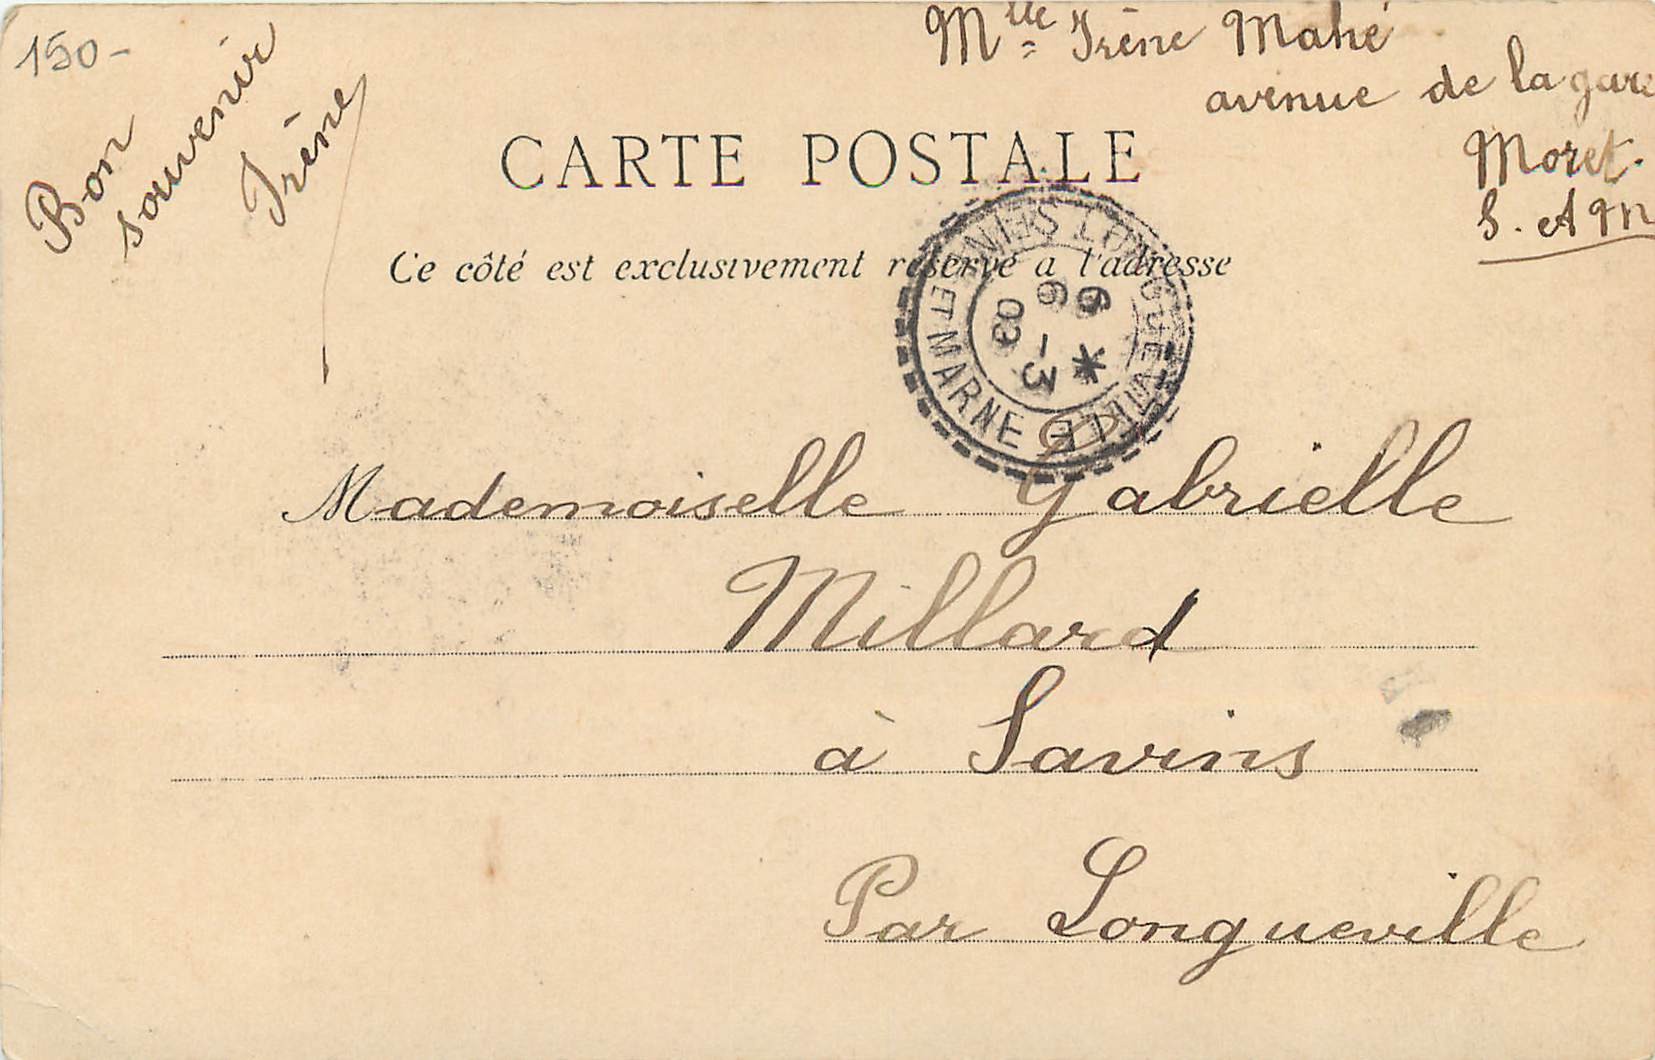 150-
Bon
souvenir
Irène
Mlle Irène Mahé
avenue de la gare
Moret.
S. et M
CARTE POSTALE
Ce côté est exclusivement réservé a l'adresse
LONGUEVILLE
SEINE ET MARNE
6
6 -3
03
Mademoiselle Gabrielle
Millard
à Savins
Par Longueville